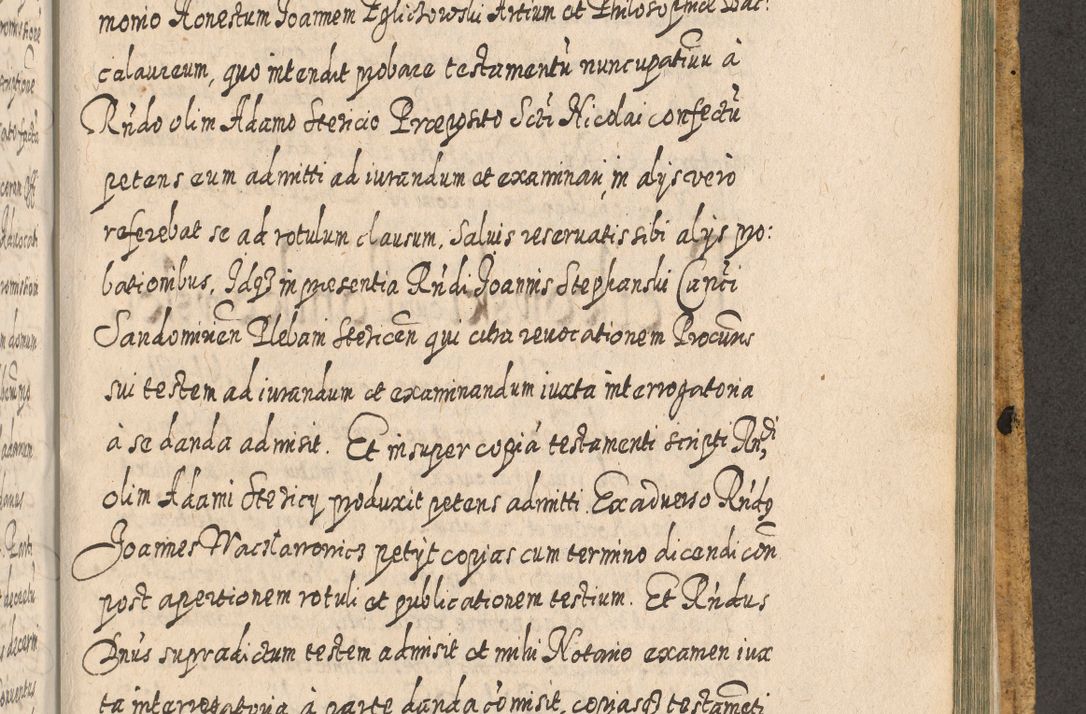 monio Honestum Joannem Pglichowski Artium et Philosophiæ Bac:
calaureum, quo intendit probare testamentũ nuncupatiuu à
Rńdo olim Adamo Stericio Præposito Scti Nicolai confectũ
petens eum admitti ad iurandum et examinari, in alijs vero
referebat se ad rotulum clausum, Saluis reseruatis sibi alijs pro:
bationibus, Idq3 in presentia Rńdi Joannis Stephanski Canci
Sandomirień Plebani Stericeń qui citra reuocationem Procuris
sui testem ad iurandum et examinandum iuxta interrogatoria
à se danda admisit. Et insuper copiá testamenti scripti Rńdi
olim Adami Stericij produxit petens admitti. Ex aduerso Rńdg
Joannes Wachlarrowicz petijt copias cum termino dicendi con
post apertionem rotuli et publicationem testium. Et Rńdus
Dnús supradictum testem admisit et mihi Notario examen iux
ta interrogatoria à parte danda cõmisit, copiasq3 testam̃eti